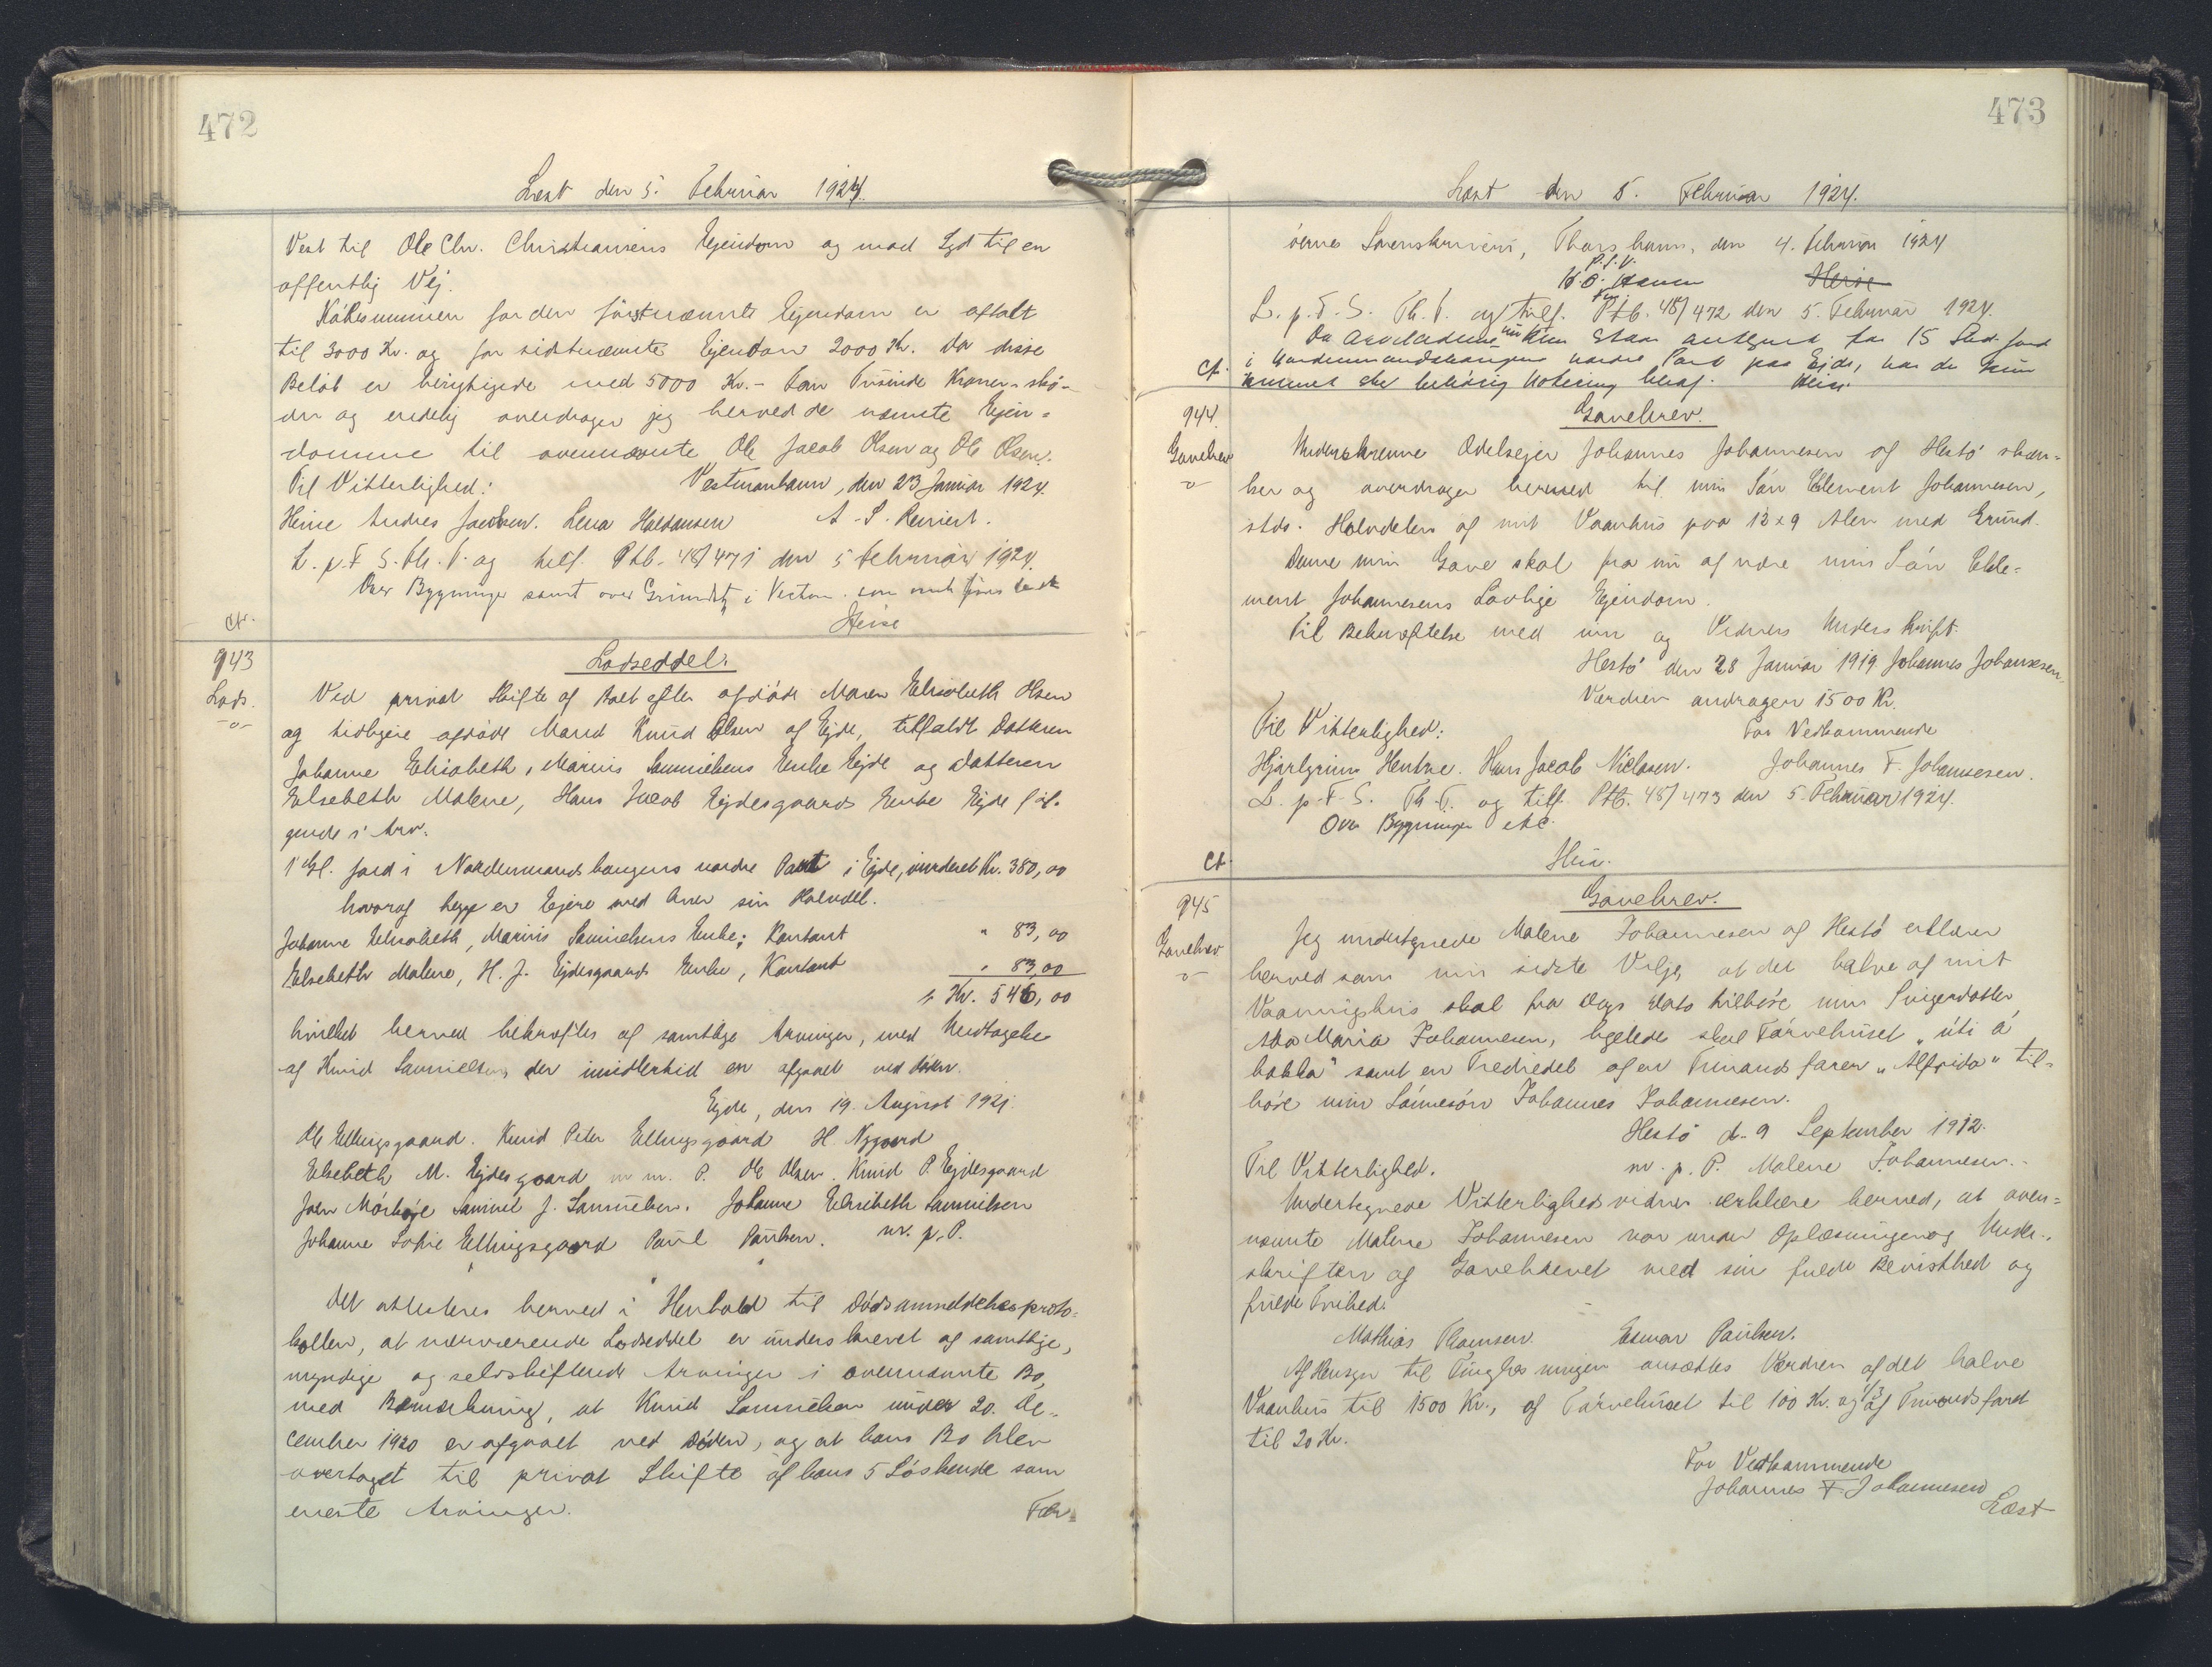 472
Læst den 5. Februar 1924.
Vest til Ole Chr. Christiansens Ejendom og mod Syd til en
offentlig Vej.
Købesummen for den førstnævnte Ejendom er aftalt
til 3000 Kr. og for sidstnævnte Ejendom 2000 Kr. Da disse
Beløb er berigtigede med 5000 Kr. - Fem Tusinde Kroner - skø-
der og endelig overdrager jeg herved de nævnte Ejen-
domme til ovennævnte Ole Jacob Olsen og Ole Olsen.
Til Vitterlighed: Vestmanhavn, den 23 Januar 1924.
Heine Andres Jacobsen. Lena Haldansen A. S. Reinert.
L. p. F. S. Th. V. og tilf. Ptb. 48/471 den 5 Februar 1924.
Over Bygninger samt over Grundst. i Vestm. som
Ct. Heise
943 Lodseddel.
Lods.
-o-
Ved privat Skifte af Boet efter afdøde Maren Elisabeth Olsen
og tidligere afdøde Mand Knud Olsen af Ejde, tilfaldt Datteren
Johanne Elisabeth, Marius Samuelsens Enke Ejde og Datteren
Elsebeth Malene, Hans Jacob Ejdesgaards Enke Ejde føl-
gende i Arv.
1 Gl. Jord i Nordenmandshaugens nordre Part i Ejde, vurderet Kr. 380,00
hvoraf begge er Ejere med hver sin Halvdel.
Johanne Elisabeth, Marius Samuelsens Enke; Kontant " 83,00
Elsebeth Malene, H. J. Ejdesgaards Enke, Kontant " 83,00
Kr. 546,00
hvilket herved bekræftes af samtlige Arvinger, med Undtagelse
af Knud Samuelsen, der imidlertid er afgaaet ved døden.
Ejde, den 19. August 1921.
Ole Ellingsgaard. Knud Peter Ellingsgaard H. Nygaard
Elsebeth M. Ejdesgaard m. p. P. Ole Olsen. Knud P. Ejdesgaard
Joen Mørkøre Samuel J. Samuelsen. Johanne Elisabeth Samuelsen
Johanne Sofie Ellingsgaard Poul Poulsen. m. p. P.
Det attesteres herved i Henhold til Dødsanmeldelsesproto-
kollen, at nærværende Lodseddel er underskrevet af samtlige,
myndige og selvskiftende Arvinger i ovennævnte Bo,
med Bemærkning, at Knud Samuelsen under 20. De-
cember 1920 er afgaaet ved Døden, og at hans Bo blev
overtaget til privat Skifte af hans 5 Søskende som
eneste Arvinger. Fær-
473
Læst den 5. Februar 1924.
øernes Sorenskriveri, Thorshavn, den 4. Februar 1924
p. S. V.
Heise
L. p. F. S. Th. V. og tilf. Ptb. 48/472 den 5. Februar 1924.
Da Arveladerne kun staar antegnet for 15 Jord
i Nordenmandshaugens nordre Part paa Ejde, har de kun
Ct. kunnet ske behørig Notering heraf. Heise
944. Gavebrev.
Gavebrev
-o-
Underskrevne Odelsejer Johannes Johannesen af Hestø skæn-
ker og overdrager hermed til min Søn Clement Johannesen,
stds. Halvdelen af mit Vaanhus paa 12 x 9 Alen med Grund.
Denne min Gave skal fra nu af være min Søn Cle-
ment Johannesens Lovlige Ejendom.
Til Bekræftelse med min og Vidners Underskrift.
Hestø den 28 Januar 1919 Johannes Johannesen.
Værdien andrager 1500 Kr.
Til Vitterlighed: For Vedkommende
Hjarlgrim Hentze. Hans Jacob Niclasen. Johannes F. Johannesen.
L. p. F. S. Th. V. og tilf. Ptb. 48/473 den 5. Februar 1924.
Over Bygninger etc.
Ct. Heise.
945 Gavebrev.
Gavebrev
-o-
Jeg undertegnede Malene Johannesen af Hestø erklærer
herved som min sidste Vilje, at det halve af mit
Vaanighus skal fra Dags Dato tilhøre min Svigerdatter
Ada Maria Johannesen, ligeledes skal Tørvehuset "úti á
bakka" samt en Trediedel af en Trimandsfarer "Alfrida" til-
høre min Sønnesøn Johannes Johannesen.
Hestø d. 9 September 1912.
Til Vitterlighed. m. p. P. Malene Johannesen.
Undertegnede Vitterlighedsvidner erklære herved, at oven-
nævnte Malene Johannesen var under Oplæsningen og Under-
skriften af Gavebrevet med sin fulde Bevisthed og
fulde Frihed.
Mathias Thomsen. Esmar Poulsen.
Af Hensyn til Tinglæsningen ansættes Værdien af det halve
Vaanhus til 1500 Kr., af Tørvehuset til 100 Kr. og 1/3 af Trimandsfaret
til 20 Kr.
For Vedkommende
Johannes F. Johannesen
Læst